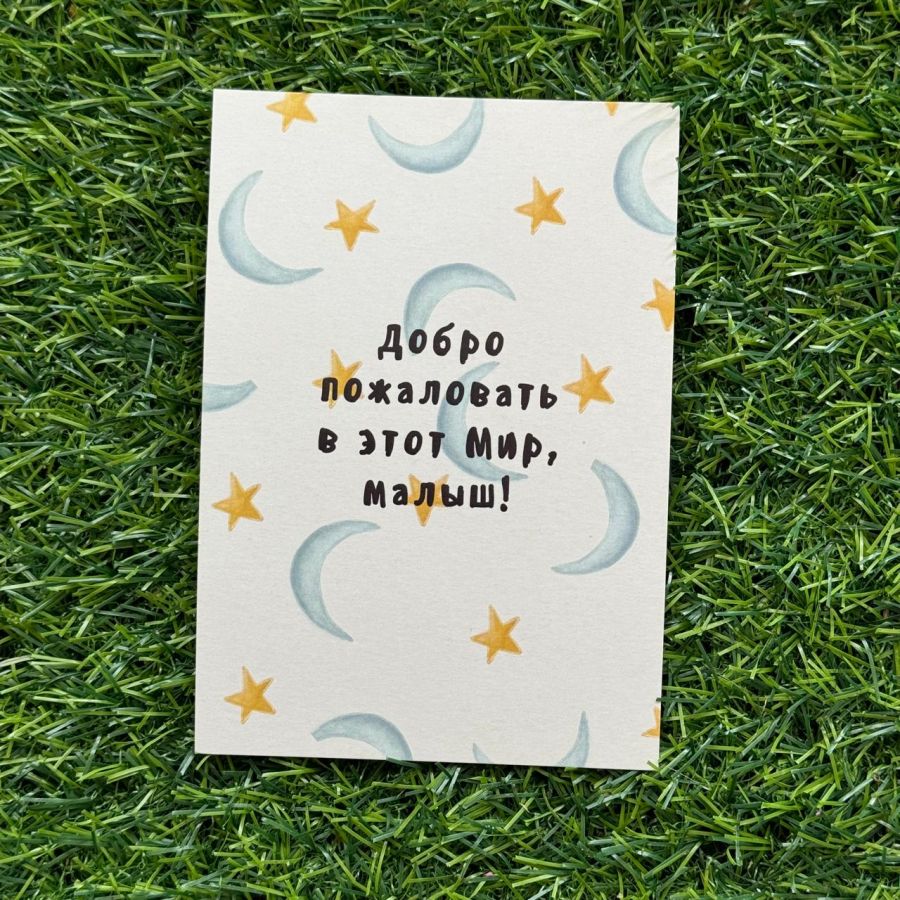 Добро
пожаловать
в этот Мир,
малыш!